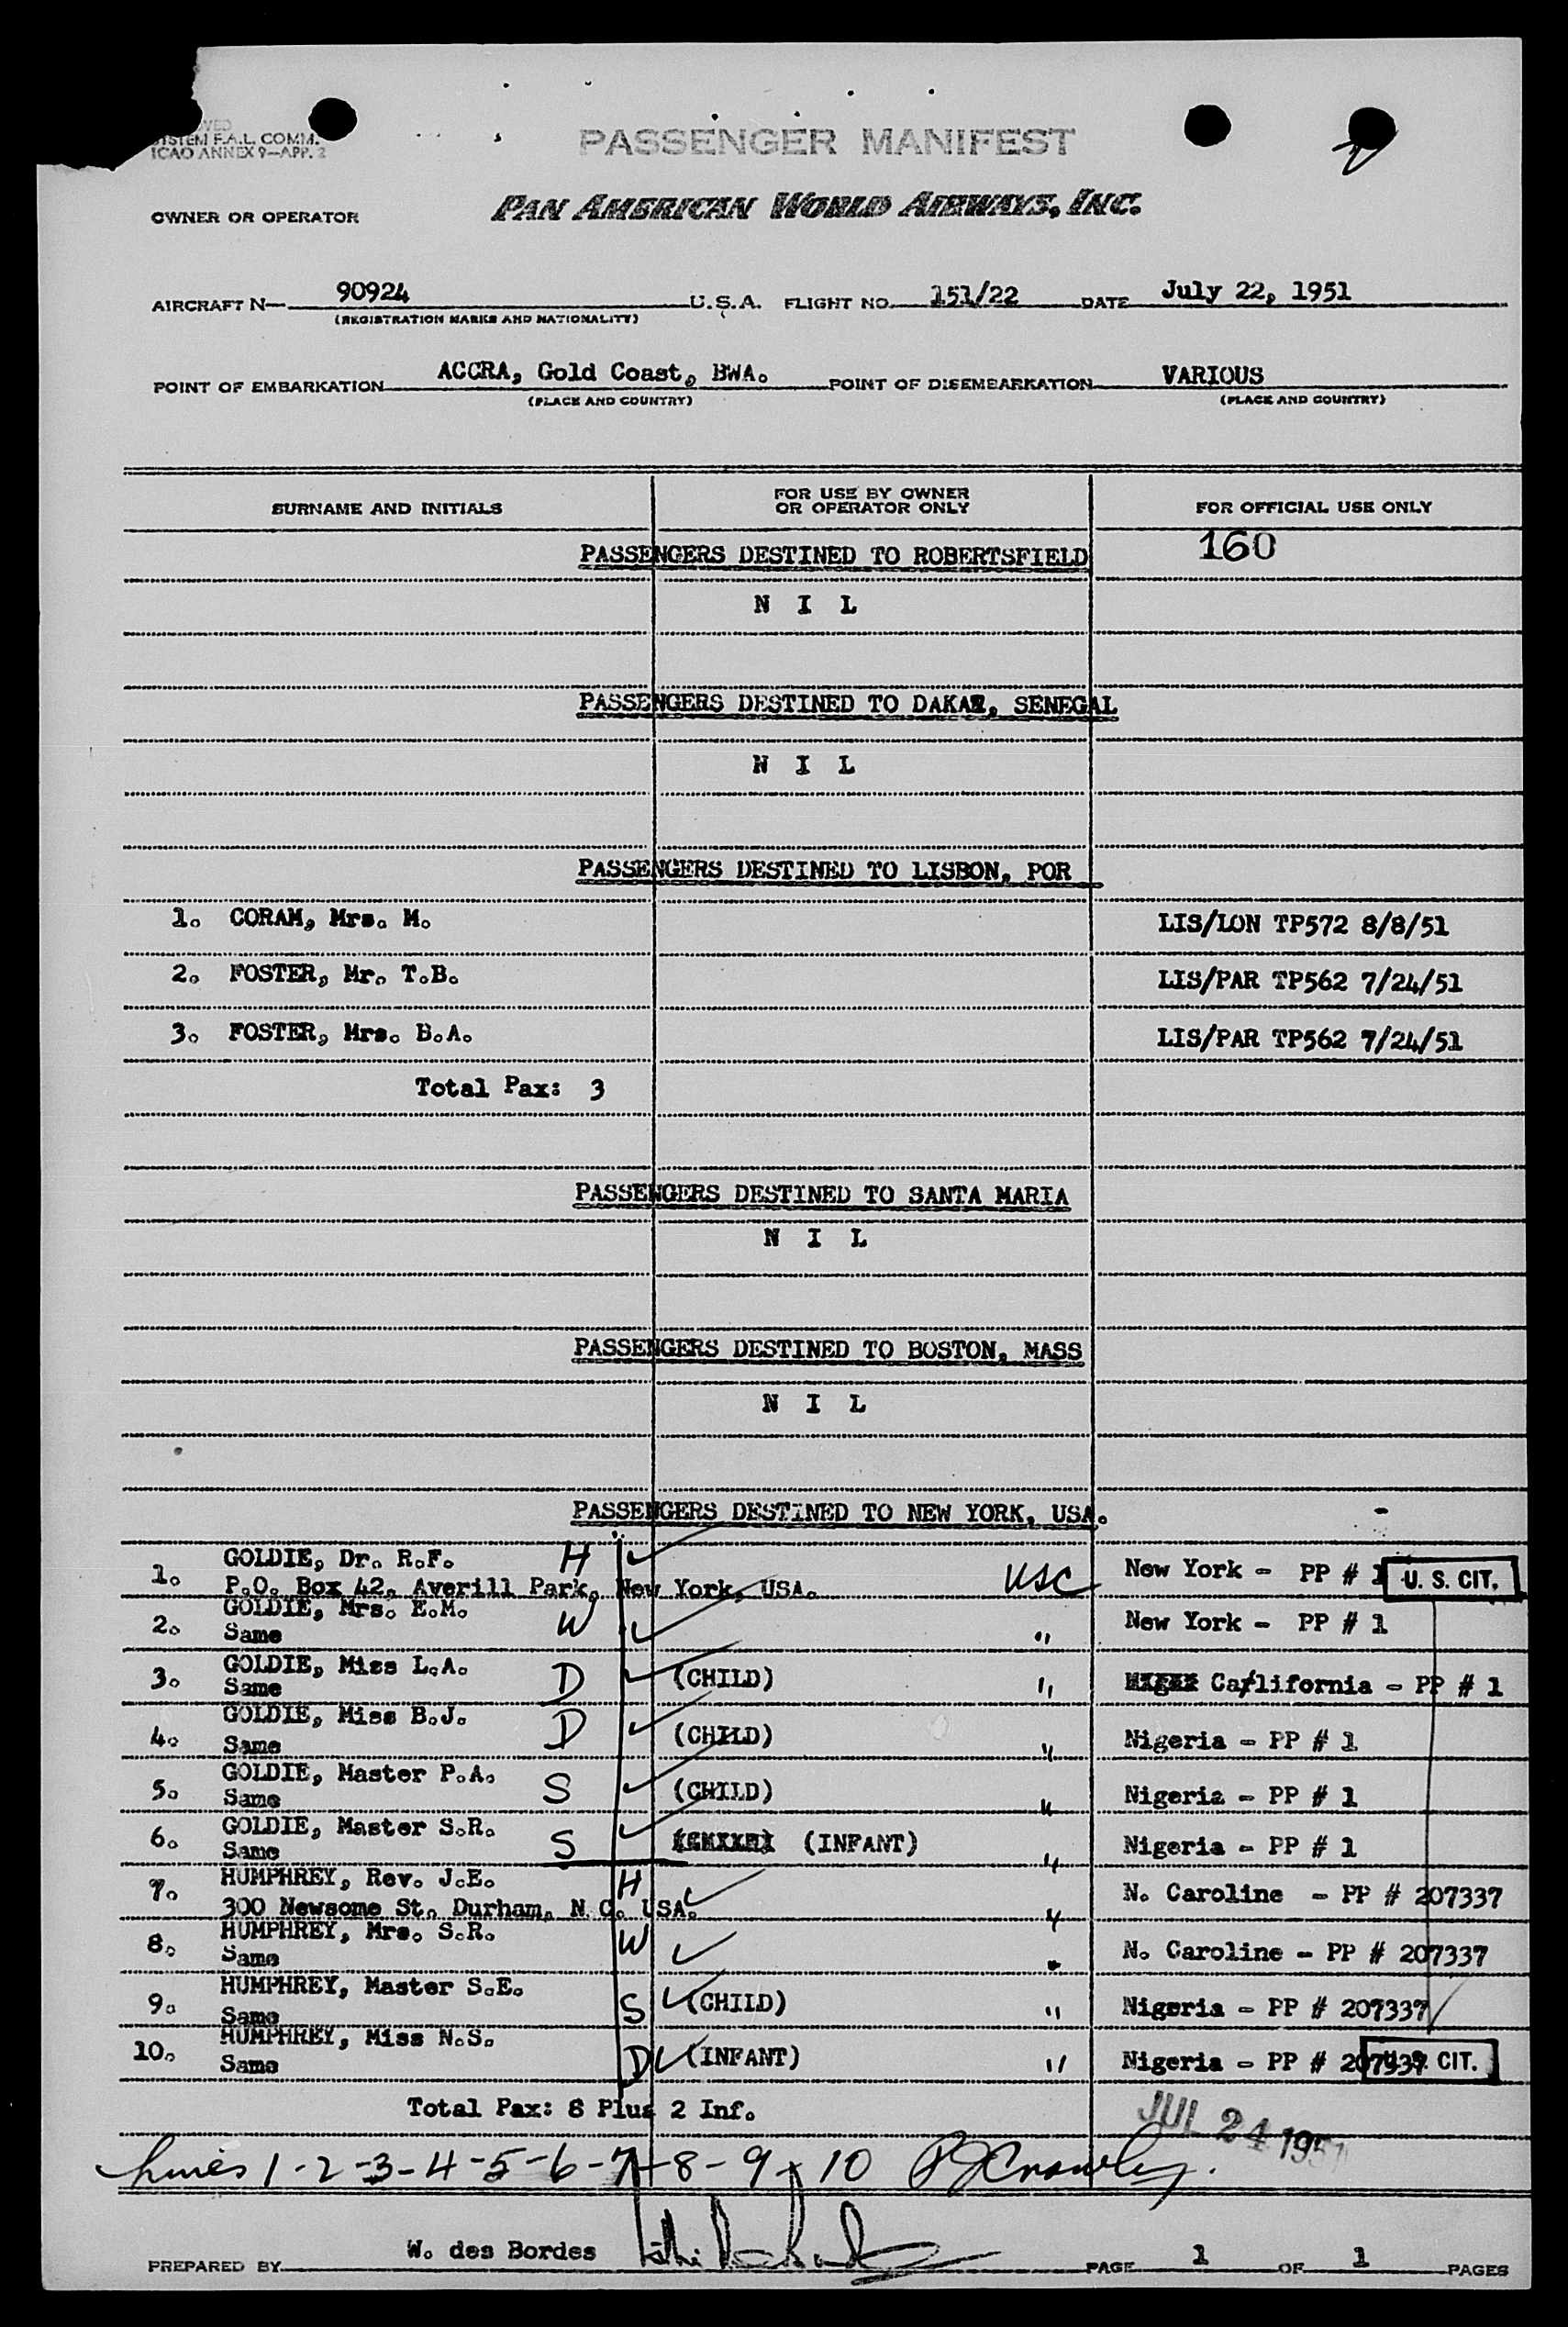 SYSTEM F.A.L. COMM.
ICAO ANNEX 9—APP. 2
PASSENGER MANIFEST
OWNER OR OPERATOR PAN AMERICAN WORLD AIRWAYS, INC.
AIRCRAFT N— 90924 U.S.A. FLIGHT NO. 151/22 DATE July 22, 1951
(REGISTRATION MARKS AND NATIONALITY)
POINT OF EMBARKATION ACCRA, Gold Coast, BWA. POINT OF DISEMBARKATION VARIOUS
(PLACE AND COUNTRY) (PLACE AND COUNTRY)
SURNAME AND INITIALS FOR USE BY OWNER OR OPERATOR ONLY FOR OFFICIAL USE ONLY
PASSENGERS DESTINED TO ROBERTSFIELD 160
N I L
PASSENGERS DESTINED TO DAKAR, SENEGAL
N I L
PASSENGERS DESTINED TO LISBON, POR
1. CORAM, Mrs. M. LIS/LON TP572 8/8/51
2. FOSTER, Mr. T.B. LIS/PAR TP562 7/24/51
3. FOSTER, Mrs. B.A. LIS/PAR TP562 7/24/51
Total Pax: 3
PASSENGERS DESTINED TO SANTA MARIA
N I L
PASSENGERS DESTINED TO BOSTON, MASS
N I L
PASSENGERS DESTINED TO NEW YORK, USA.
1. GOLDIE, Dr. R.F. H New York - PP # 1 U. S. CIT.
P.O. Box 42, Averill Park, New York, USA. USC
2. GOLDIE, Mrs. E.M. W " New York - PP # 1
Same
3. GOLDIE, Miss L.A. D (CHILD) " California - PP # 1
Same
4. GOLDIE, Miss B.J. D (CHILD) " Nigeria - PP # 1
Same
5. GOLDIE, Master P.A. S (CHILD) " Nigeria - PP # 1
Same
6. GOLDIE, Master S.R. S (INFANT) " Nigeria - PP # 1
Same
7. HUMPHREY, Rev. J.E. H N. Caroline - PP # 207337
300 Newsome St. Durham, N.C. USA. "
8. HUMPHREY, Mrs. S.R. W " N. Caroline - PP # 207337
Same
9. HUMPHREY, Master S.E. S (CHILD) " Nigeria - PP # 207337
Same
10. HUMPHREY, Miss N.S. D (INFANT) " Nigeria - PP # 207337 U. S. CIT.
Same
Total Pax: 8 Plus 2 Inf. JUL 24 1951
Lines 1-2-3-4-5-6-7-8-9-10
PREPARED BY W. des Bordes PAGE 1 OF 1 PAGES